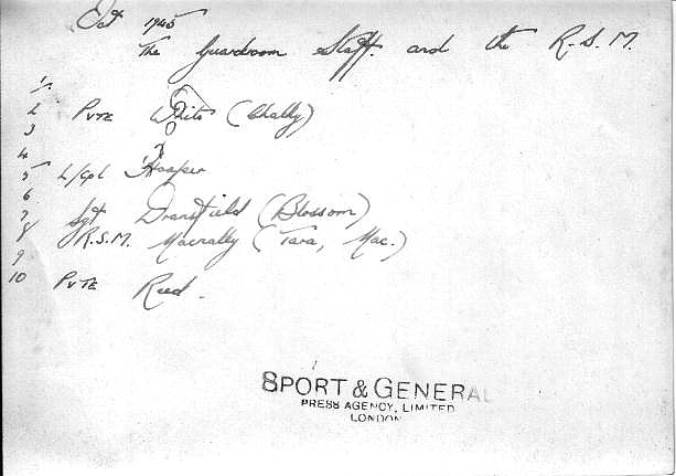 Oct 1945
The Guardroom Staff. and the R.S.M.
1
2 PVTE White (Chally)
3
4
5 L/Cpl Hooper
6
7 Sgt Dransfield (Blossom)
8 R.S.M. Macnally (Tara, Mac.)
9
10 PVTE Reed.
SPORT & GENERAL
PRESS AGENCY, LIMITED
LONDON